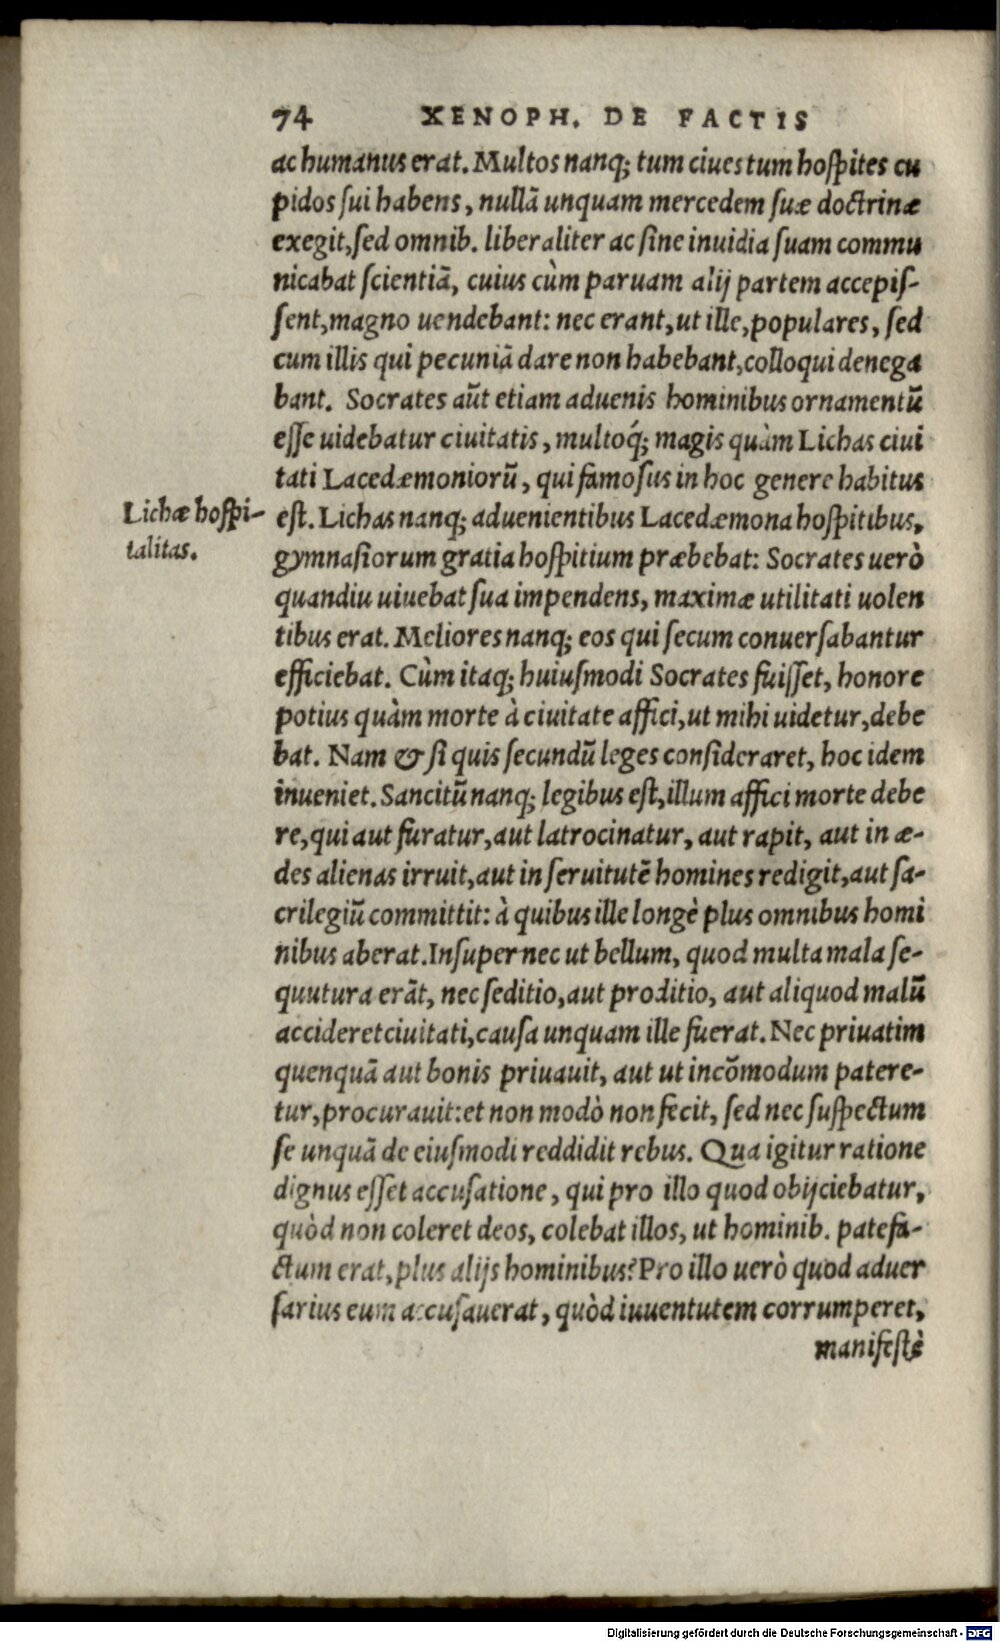 74 XENOPH. DE FACTIS
ac humanus erat. Multos nanq; tum ciues tum hoſpites cu
pidos ſui habens, nullā unquam mercedem ſuæ doctrinæ
exegit, ſed omnib. liberaliter ac ſine inuidia ſuam commu
nicabat ſcientiā, cuius cùm paruam alij partem accepiſ-
ſent, magno uendebant: nec erant, ut ille, populares, ſed
cum illis qui pecuniā dare non habebant, colloqui denega
bant. Socrates aūt etiam aduenis hominibus ornamentū
eſſe uidebatur ciuitatis, multoq́; magis quàm Lichas ciui
tati Lacedæmoniorū, qui famoſus in hoc genere habitus
Lichæ hoſpi-
talitas.
eſt. Lichas nanq; aduenientibus Lacedæmona hoſpitibus,
gymnaſiorum gratia hoſpitium præbebat: Socrates uerò
quandiu uiuebat ſua impendens, maximæ utilitati uolen
tibus erat. Meliores nanq; eos qui ſecum conuerſabantur
efficiebat. Cùm itaq; huiuſmodi Socrates fuiſſet, honore
potius quàm morte à ciuitate affici, ut mihi uidetur, debe
bat. Nam & ſi quis ſecundū leges conſideraret, hoc idem
inueniet. Sancitū nanq; legibus eſt, illum affici morte debe
re, qui aut furatur, aut latrocinatur, aut rapit, aut in æ-
des alienas irruit, aut in ſeruitutē homines redigit, aut ſa-
crilegiū committit: à quibus ille longè plus omnibus homi
nibus aberat. Inſuper nec ut bellum, quod multa mala ſe-
quutura erāt, nec ſeditio, aut proditio, aut aliquod malū
accideret ciuitati, cauſa unquam ille fuerat. Nec priuatim
quenquā aut bonis priuauit, aut ut incōmodum patere-
tur, procurauit: et non modò non fecit, ſed nec ſuſpectum
ſe unquā de eiuſmodi reddidit rebus. Qua igitur ratione
dignus eſſet accuſatione, qui pro illo quod obijciebatur,
quòd non coleret deos, colebat illos, ut hominib. patefa-
ctum erat, plus alijs hominibus? Pro illo uerò quod aduer
ſarius eum accuſauerat, quòd iuuentutem corrumperet,
manifeſtè
Digitalisierung gefördert durch die Deutsche Forschungsgemeinschaft - DFG